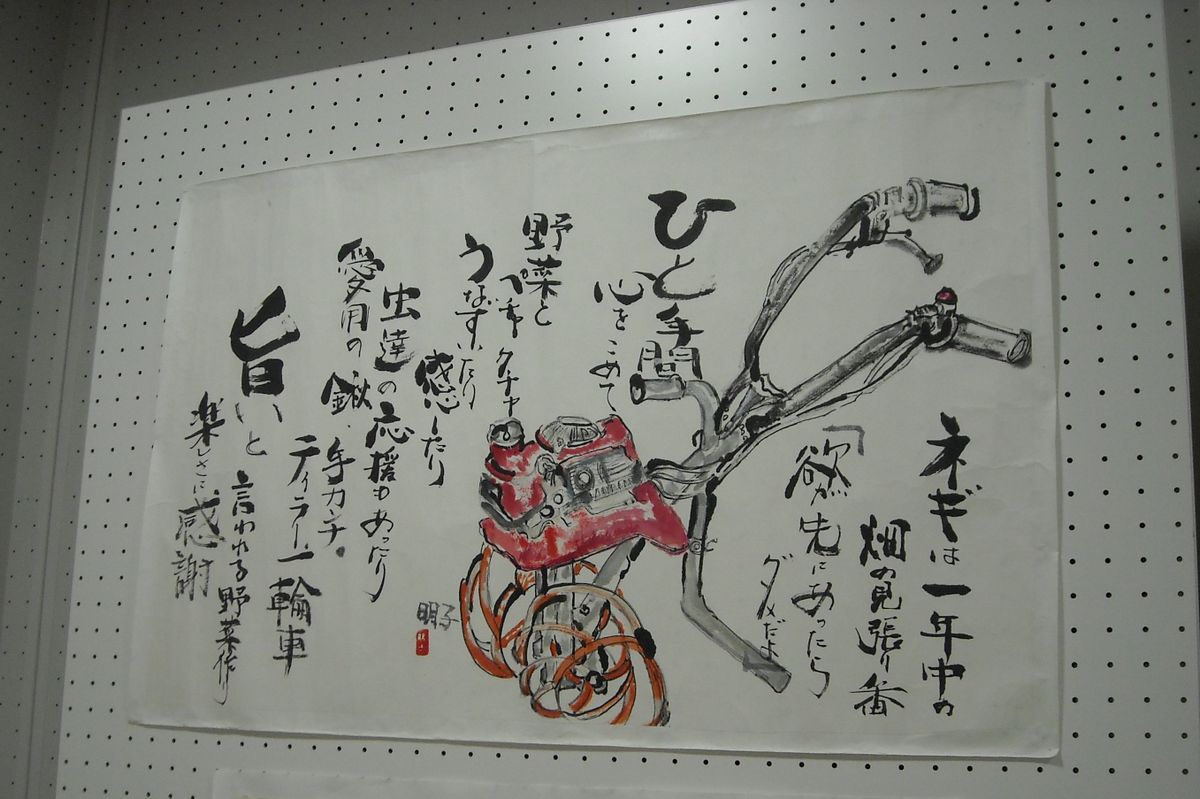 ネギは一年中の
畑の見張り番
「欲が先にあったら
ダメだよ
ひと手間
心をこめて、
野菜と
ペチャクチャ
うなずいたり
感心したり
虫達の応援もあったり
愛用の鍬、
手カンナ。
ティラー、一輪車
旨いと
言われる野菜作り
楽しさに感謝
明子